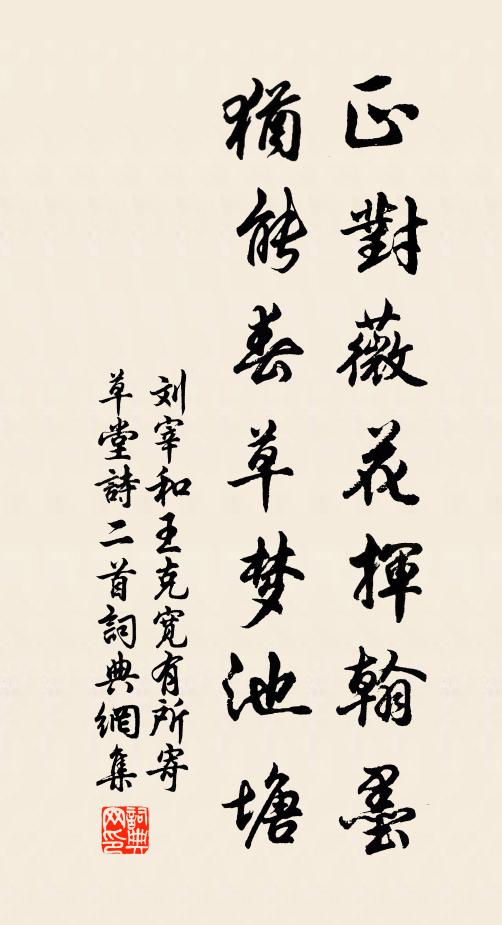 正對薇花揮翰墨
猶能春草梦池塘
刘宰和王克寬有所寄
草堂詩二首詞典網集
詞典
网印